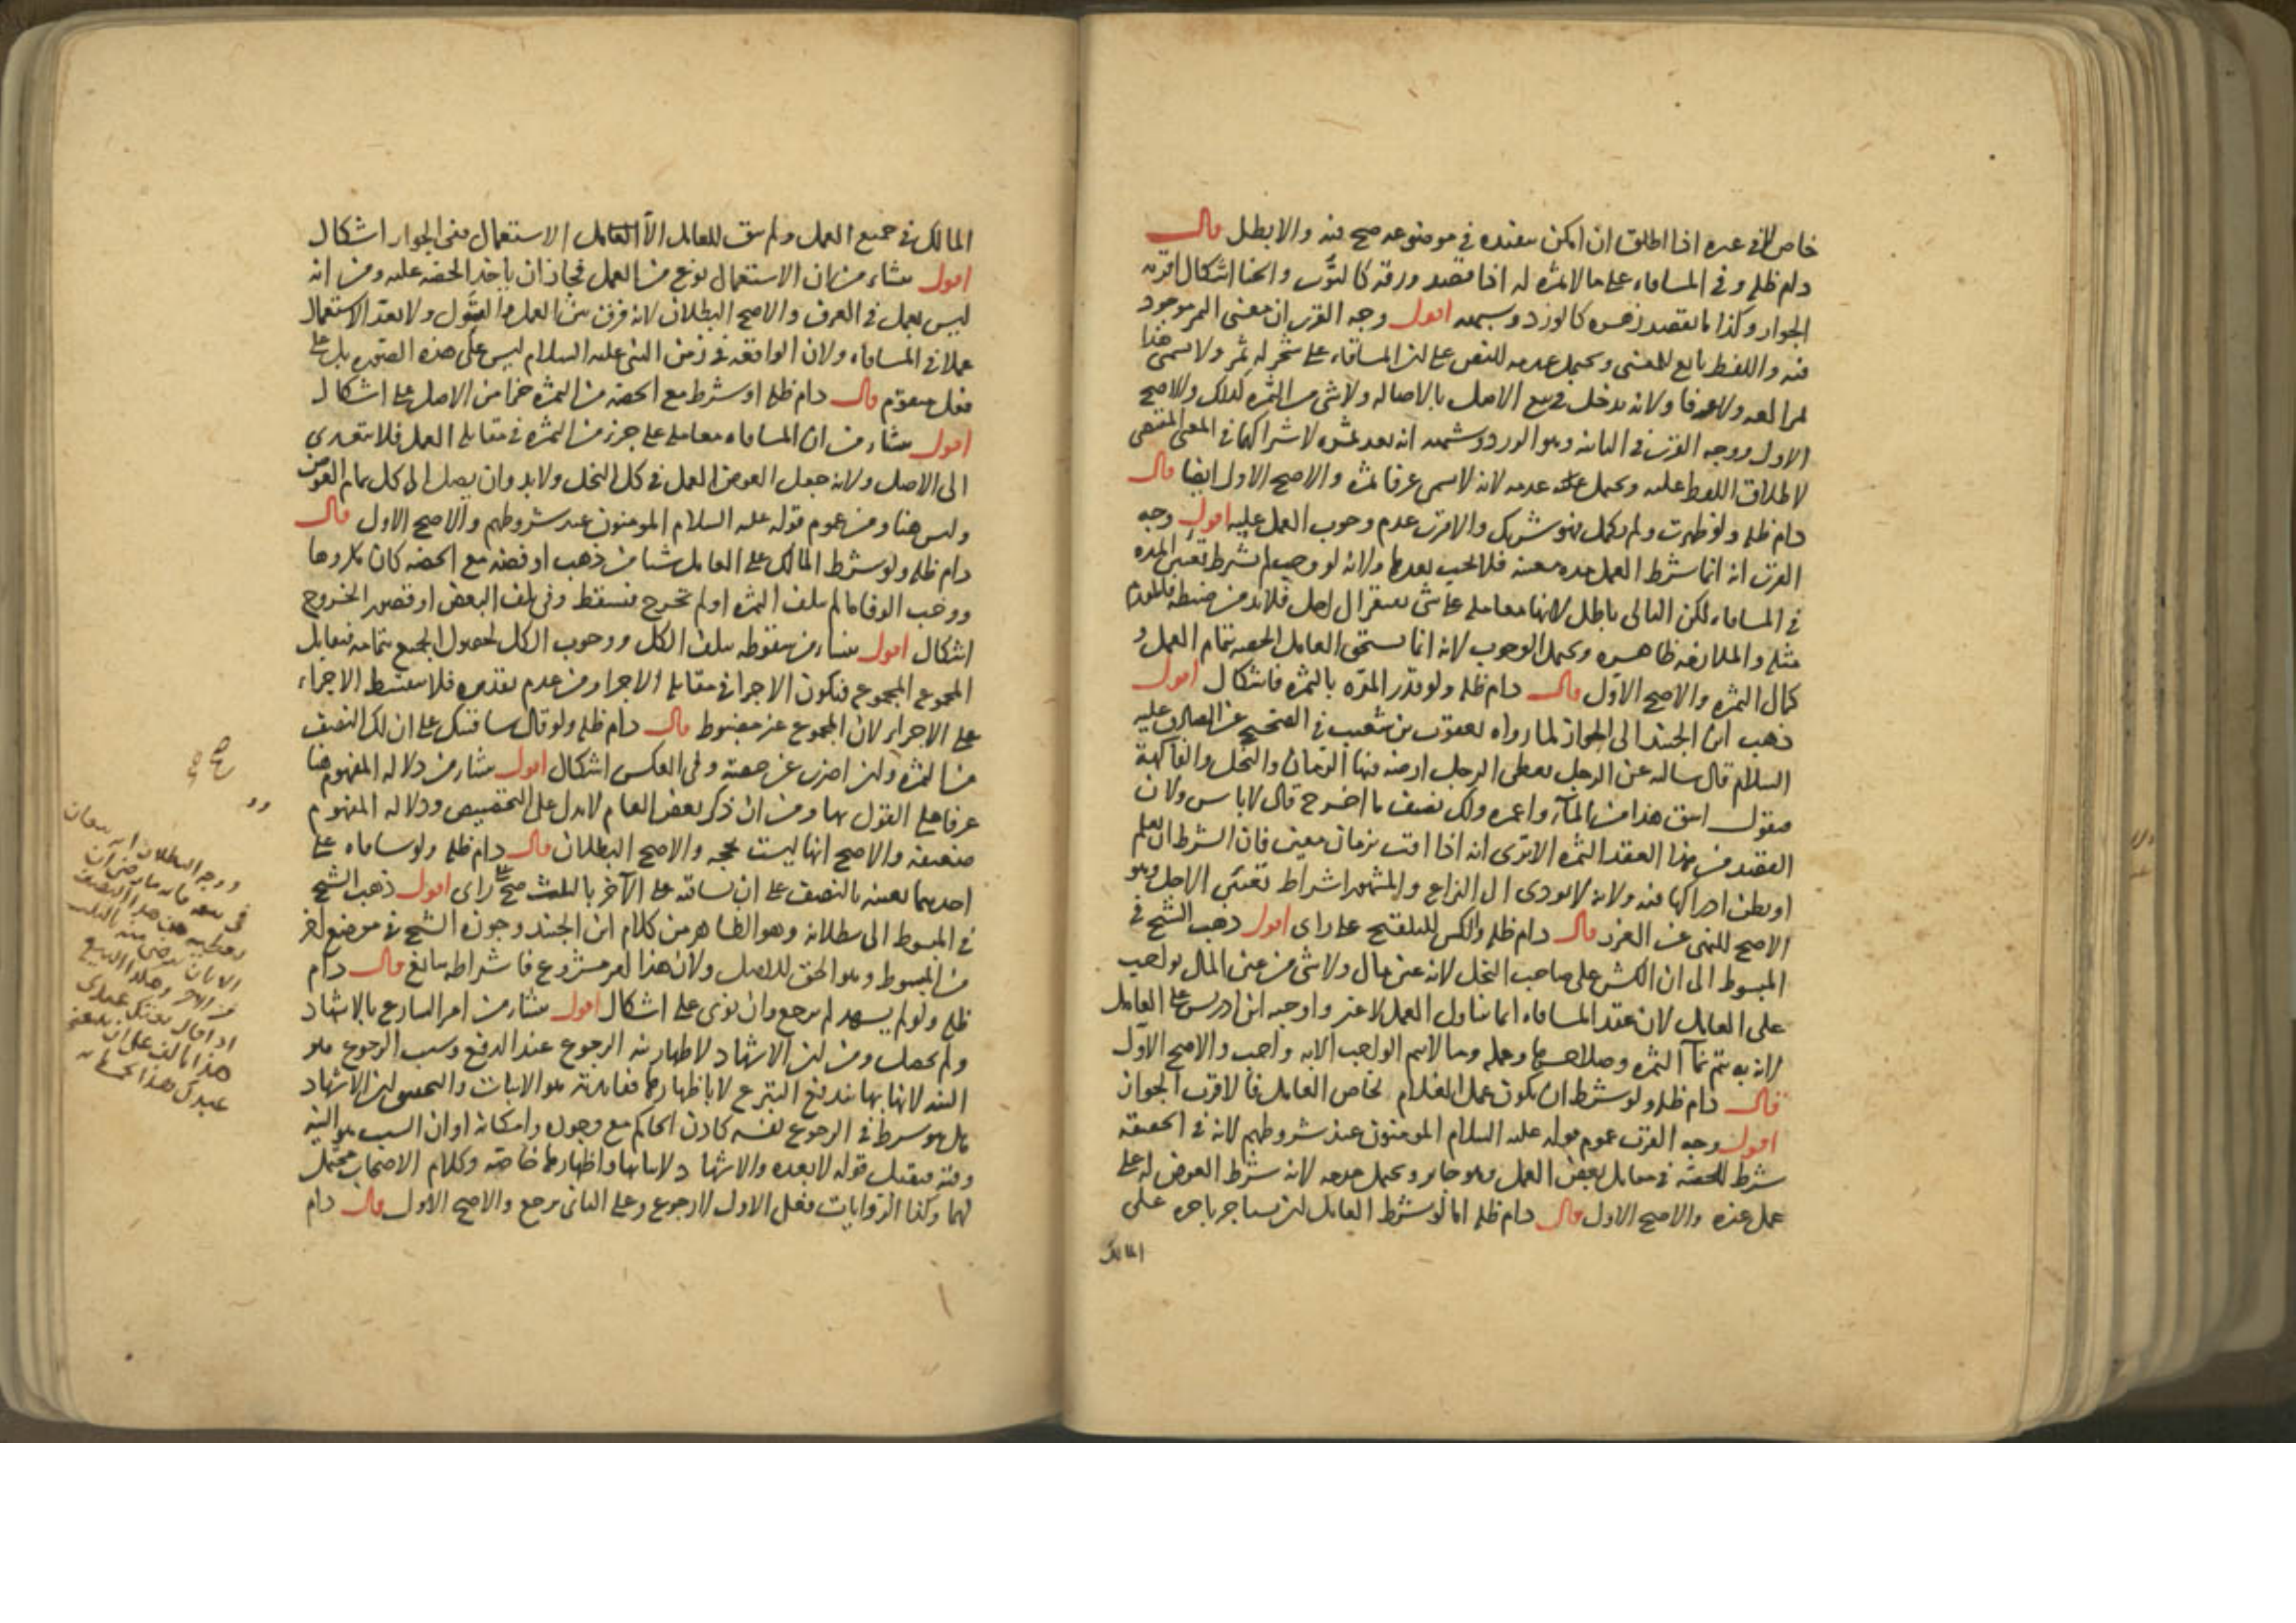 خاص في غيره اذا اطلق ان امكن تنفيذه في موضوعه صح فيه والا بطل قال
دام ظله وفي المساقاه على ما لا ثمره له اذا قصد ورقه كالتوت والحنا اشكال اقربه
الجواز وكذا ما يقصد زهره كالورد وشبهه اقول وجه القرب ان معنى الثمر موجود
فيه واللفظ تابع للمعنى ويحتمل عدمه للنص على ان المساقاه على شجر له ثمر ولا يسمى هذا
ثمرا لغه ولا عرفا ولانه يدخل في بيع الاصل بالاصاله ولا شى من الثمره كذلك والاصح
الاول ووجه القرب في الثانيه وهو الورد وشبهه انه يعد ثمره لاشتراكهما في المعنى المقتضى
لاطلاق اللفظ عليه ويحتمل عدمه لانه لا يسمى عرفا ثمره والاصح الاول ايضا قال
دام ظله ولو ظهرت ولم يكمل فهو شريك والاقرب عدم وجوب العمل عليه اقول وجه
القرب انه انما شرط العمل مده معينه فلا يجب بعدها ولانه لو وجب لم يشترط تعيين المده
في المساقاه لكن التالى باطل لانها معامله على شى يفتقر الى اجل فلا بد من ضبطه
مثله والملازمه ظاهره ويحتمل الوجوب لانه انما يستحق العامل الحصه بتمام العمل و
كمال الثمره والاصح الاول قال دام ظله ولو قدر المده بالثمره فاشكال اقول
ذهب ابن الجنيد الى الجواز لما رواه يعقوب بن شعيب في الصحيح عن الصادق عليه
السلام قال سالته عن الرجل يعطى الرجل ارضه فيها الرمان والنخل والفاكهة
فيقول اسق هذا من المآء واعمره ولك نصف ما اخرج قال لا باس ولان
القصد من هذا العقد الثمره الا ترى انه اذا اقت بزمان معين فان الشرط ان يعلم
او يظن ادراكها فيه ولانه لا يودى الى النزاع والمشهور اشتراط تعيين الاجل وهو
الاصح للنهى عن الغرر قال دام ظله والكش للتلقيح على راى اقول ذهب الشيخ في
المبسوط الى ان الكش على صاحب النخل لانه عين مال ولا شى من عين المال بواجب
على العامل لان عقد المساقاه انما يتناول العمل لا غير واوجبه ابن ادريس على العامل
لان به يتم نمآ الثمره وصلاحها وحمله وما لا يتم الواجب الا به واجب والاصح الاول
قال دام ظله ولو شرط ان يكون عمل الغلام لخاص العامل فالاقرب الجواز
اقول وجه القرب عموم قوله عليه السلام المومنون عند شروطهم لانه في الحقيقه
شرط للحصه في مقابل بعض العمل وهو جايز ويحتمل عدمه لانه شرط العوض له على
عمل غيره والاصح الاول قال دام ظله اما لو شرط العامل ان يستاجر باجره على
المالك
المالك في جميع العمل ولم يبق للعامل الا الاستعمال ففى الجواز اشكال
اقول ينشاء من ان الاستعمال نوع من العمل فجاز ان ياخذ الحصه عليه ومن انه
ليس بعمل في العرف والاصح البطلان لانه فرق بين العمل والقبول ولا يعد الاستعمال
عملا في المساقاه ولان الواقعه في زمن النبى عليه السلام ليس على هذه الصوره بل على
فعل متقوم قال دام ظله او شرط مع الحصه من الثمره جزءا من الاصل على اشكال
اقول ينشاء من ان المساقاه معامله على جزء من الثمره في مقابله العمل فلا يتعدى
الى الاصل ولانه جعل العوض العمل في كل النخل ولا بد وان يصل الى كل تمام العوض
وليس هنا ومن عموم قوله عليه السلام المومنون عند شروطهم والاصح الاول قال
دام ظله ولو شرط المالك على العامل شيا من ذهب او فضه مع الحصه كان مكروها
ووجب الوفا ما لم يتلف الثمره او لم تخرج فيسقط وفي تلف البعض او قصور الخروج
اشكال اقول ينشاء من سقوطه بتلف الكل ووجوب الكل لحصول الجميع بتمامه فيقابل
المجموع المجموع فيكون الاجزا في مقابله الاجزاء ومن عدم تقديره فلا يقسط الاجزاء
على الاجزاء لان المجموع غير مضبوط قال دام ظله ولو قال ساقيتك على ان لك النصف
من الثمره وان اضرب عن حصته وفي العكس اشكال اقول ينشاء من دلاله المفهوم هنا
عرفا على القول بها ومن ان ذكر بعض العام لا يدل على التخصيص ودلاله المفهوم
ضعيفه والاصح انها ليست بحجه والاصح البطلان قال دام ظله ولو ساقاه على
احديهما بعينه بالنصف على ان يساقيه على الآخر بالثلث صح على راى اقول ذهب الشيخ
في المبسوط الى بطلانه وهو الظاهر من كلام ابن الجنيد وجوزه الشيخ في موضع اخر
من المبسوط وهو الحق للاصل ولان هذا امر مشروع فاشتراطه سايغ قال دام
ظله ولو لم يشهد لم يرجع وان نوى على اشكال اقول ينشاء من امر الشارع بالاشهاد
ولم يحصل ومن ان الاشهاد لاظهار نيه الرجوع عند الدفع وسبب الرجوع هو
النيه لانها بها يندفع التبرع لا باظهارها ففايدته هو الاثبات والتحقيق ان الاشهاد
هل هو شرط في الرجوع نفسه كاذن الحاكم مع وجوده وامكانه او ان السبب هو النيه
وفيه فيقبل قوله لا بعده والاشهاد لاثباتها واظهارها خاصه وكلام الاصحاب محتمل
لهما وكذا الروايات فعلى الاول لا رجوع وعلى الثانى يرجع والاصح الاول قال دام
ووجه البطلان انه بيعان
في بيعه فانه ما رضى ان
يعطيه من هذا النصف
الا بان يرضى منه بالثلث
من الاخر وهكذا البيع
اذا قال بعتك عبدى
هذا بالف على ان تبيعنى
عبدك هذا بخمسمايه